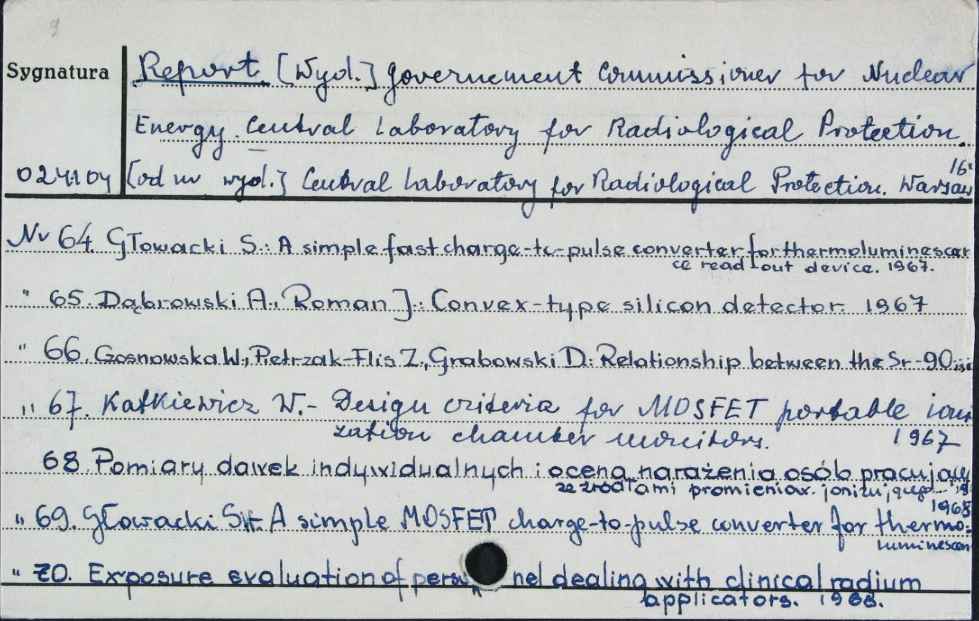 9
Sygnatura
Report [Wyd.] Governement Commissioner for Nuclear
Energy. Central Laboratory for Radiological Protection.
16.
024104 [od nr wyd.] Central Laboratory for Radiological Protection. Warsaw
Nr 64. Głowacki S.: A simple fast charge-to-pulse converter for thermoluminescen
ce read-out device. 1967.
" 65. Dąbrowski A., Roman J.: Convex-type silicon detector. 1967
" 66. Gosnowska W., Pietrzak-Flis Z., Grabowski D.: Relationship between the Sr-90
" 67. Kafkiewicz W.- Design criteria for MOSFET portable ioni
zation chamber monitors. 1967
68. Pomiary dawek indywidualnych i ocena narażenia osób pracujący
ze źródłami promieniow. jonizującego
1968
" 69. Głowacki S.W. A simple MOSFET charge-to-pulse converter for thermo-
luminescen
" 70. Exposure evaluation of pers nel dealing with clinical radium
applicators. 1968.